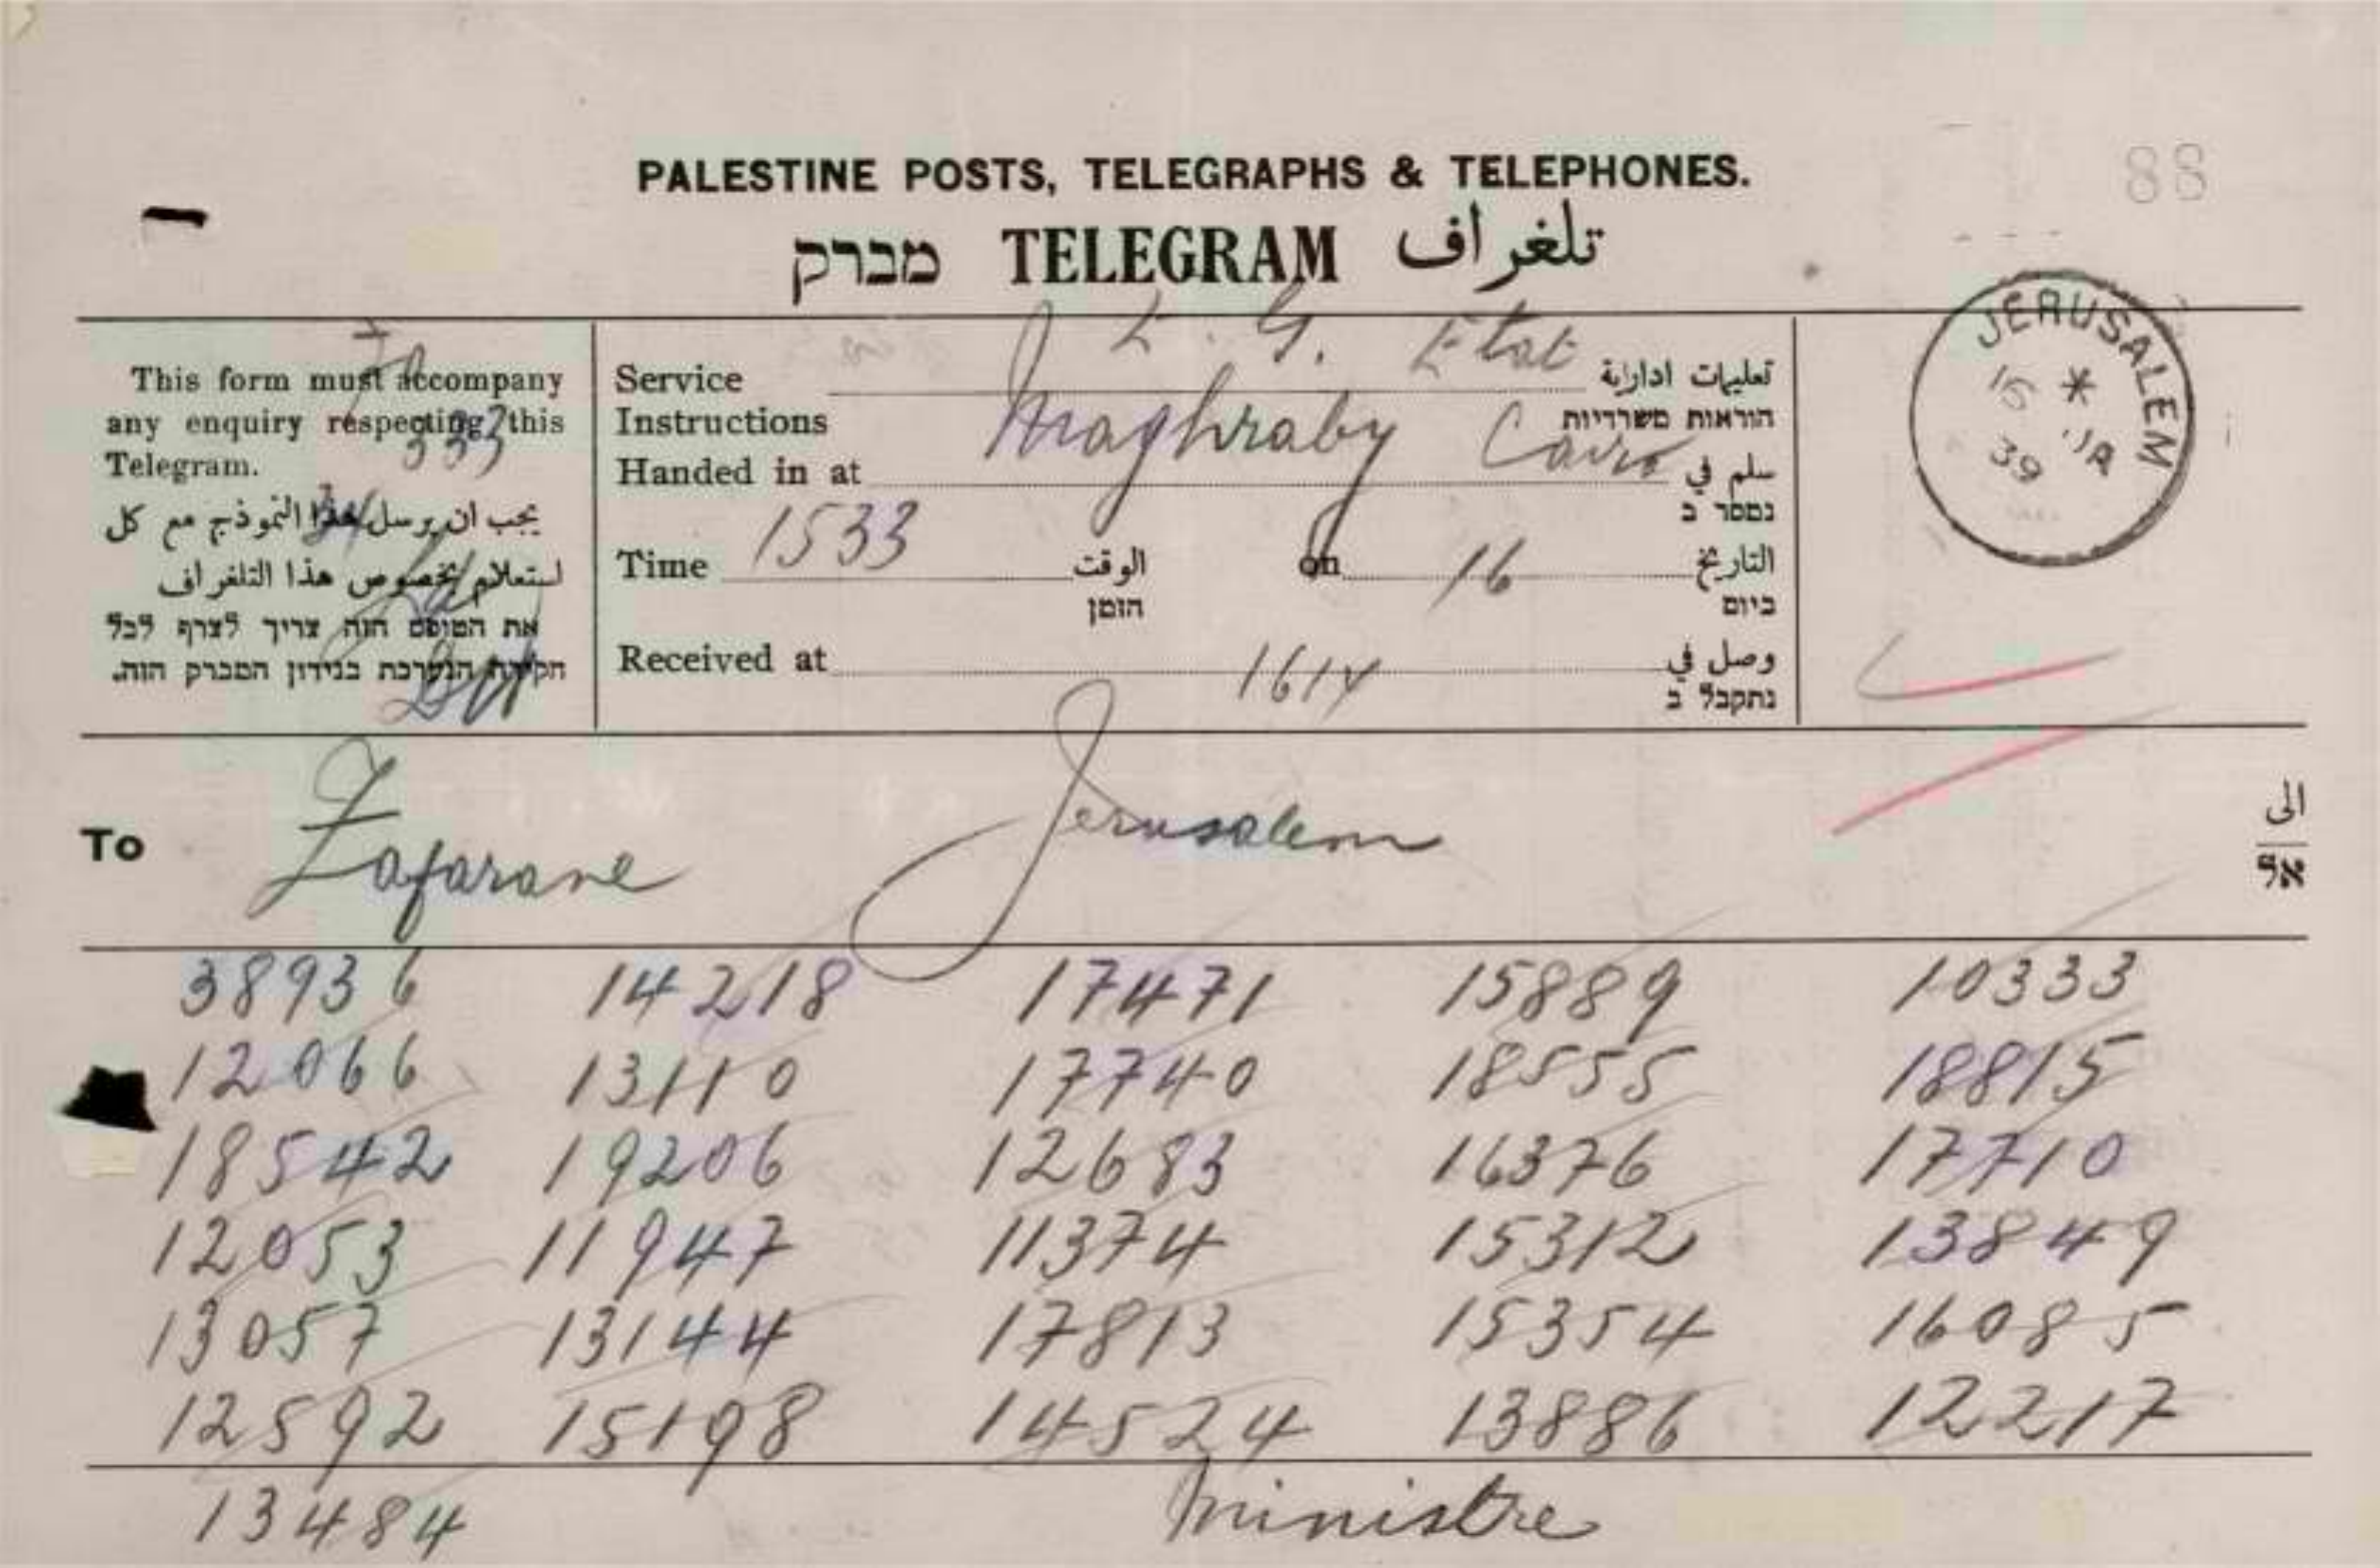 88
PALESTINE POSTS, TELEGRAPHS & TELEPHONES.
מברק TELEGRAM تلغراف
This form must accompany
any enquiry respecting this
Telegram.
يجب ان يرسل هذا النموذج مع كل
استعلام بخصوص هذا التلغراف
את הטופס הזה צריך לצרף לכל
חקירה הנערכת בנידון המברק הזה.
Etat
Service تعليمات ادارية
Instructions הוראות משרדיות
Handed in at Maghraby Cairo سلم في
נמסר ב
Time 1533 الوقت on 16 التاريخ
הזמן ביום
Received at 1614 وصل في
נתקבל ב
JERUSALEM
16
39
To Zafarane Jerusalem الى
אל
38936 14218 17471 15889 10333
12066 13110 17740 18555 18815
18542 19206 12683 16376 17710
12053 11947 11374 15312 13849
13057 13144 17813 15354 16085
12592 15198 14524 13886 12217
13484 Ministre